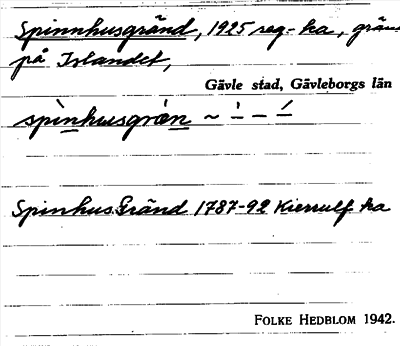 Spinnhusgränd, 1925 reg-ka, gränd
på Islandet,
Gävle stad, Gävleborgs län
spìnhusgrän ~ - – -
SpinhusGränd 1787-92 Kierrulf ka
FOLKE HEDBLOM 1942.